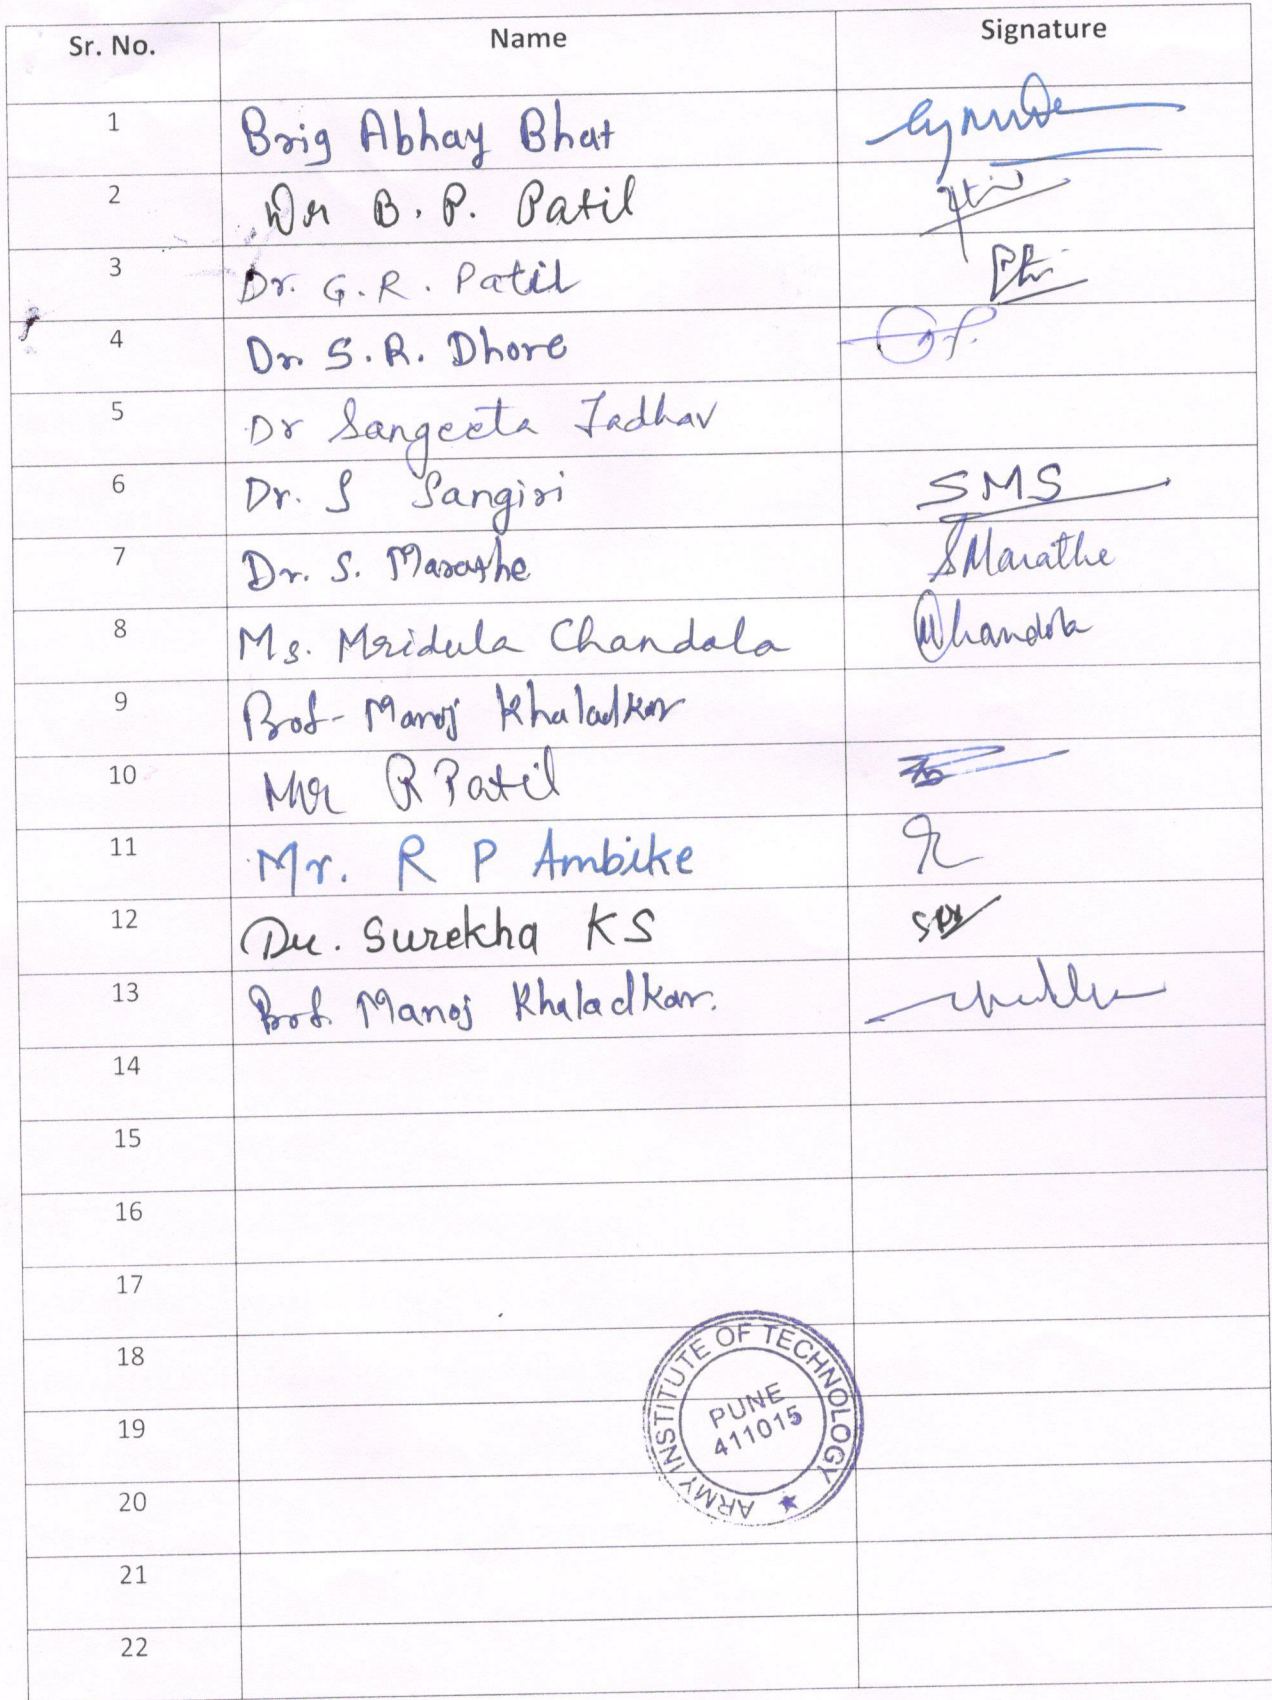 Sr. No. Name Signature
1 Brig Abhay Bhat
2 Dr B. P. Patil
3 Dr. G. R. Patil
4 Dr. S. R. Dhore
5 Dr Sangeeta Jadhav
6 Dr. S Sangiri SMS
7 Dr. S. Marathe SMarathe
8 Ms. Mridula Chandola
9 Prof- Manoj Khaladkar
10 Mr R Patil
11 Mr. R P Ambike
12 Dr. Surekha KS
13 Prof. Manoj Khaladkar.
14
15
16
17
18
19
20
21
22
ARMY INSTITUTE OF TECHNOLOGY
PUNE
411015